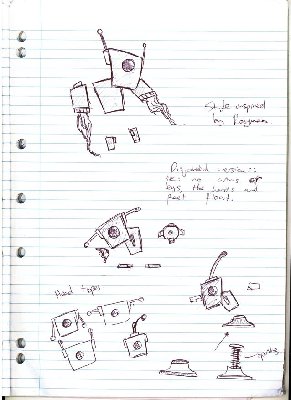 Style inspired
by Rayman
version:
no arms or
legs, the hands and
feet float.
Head types
spring